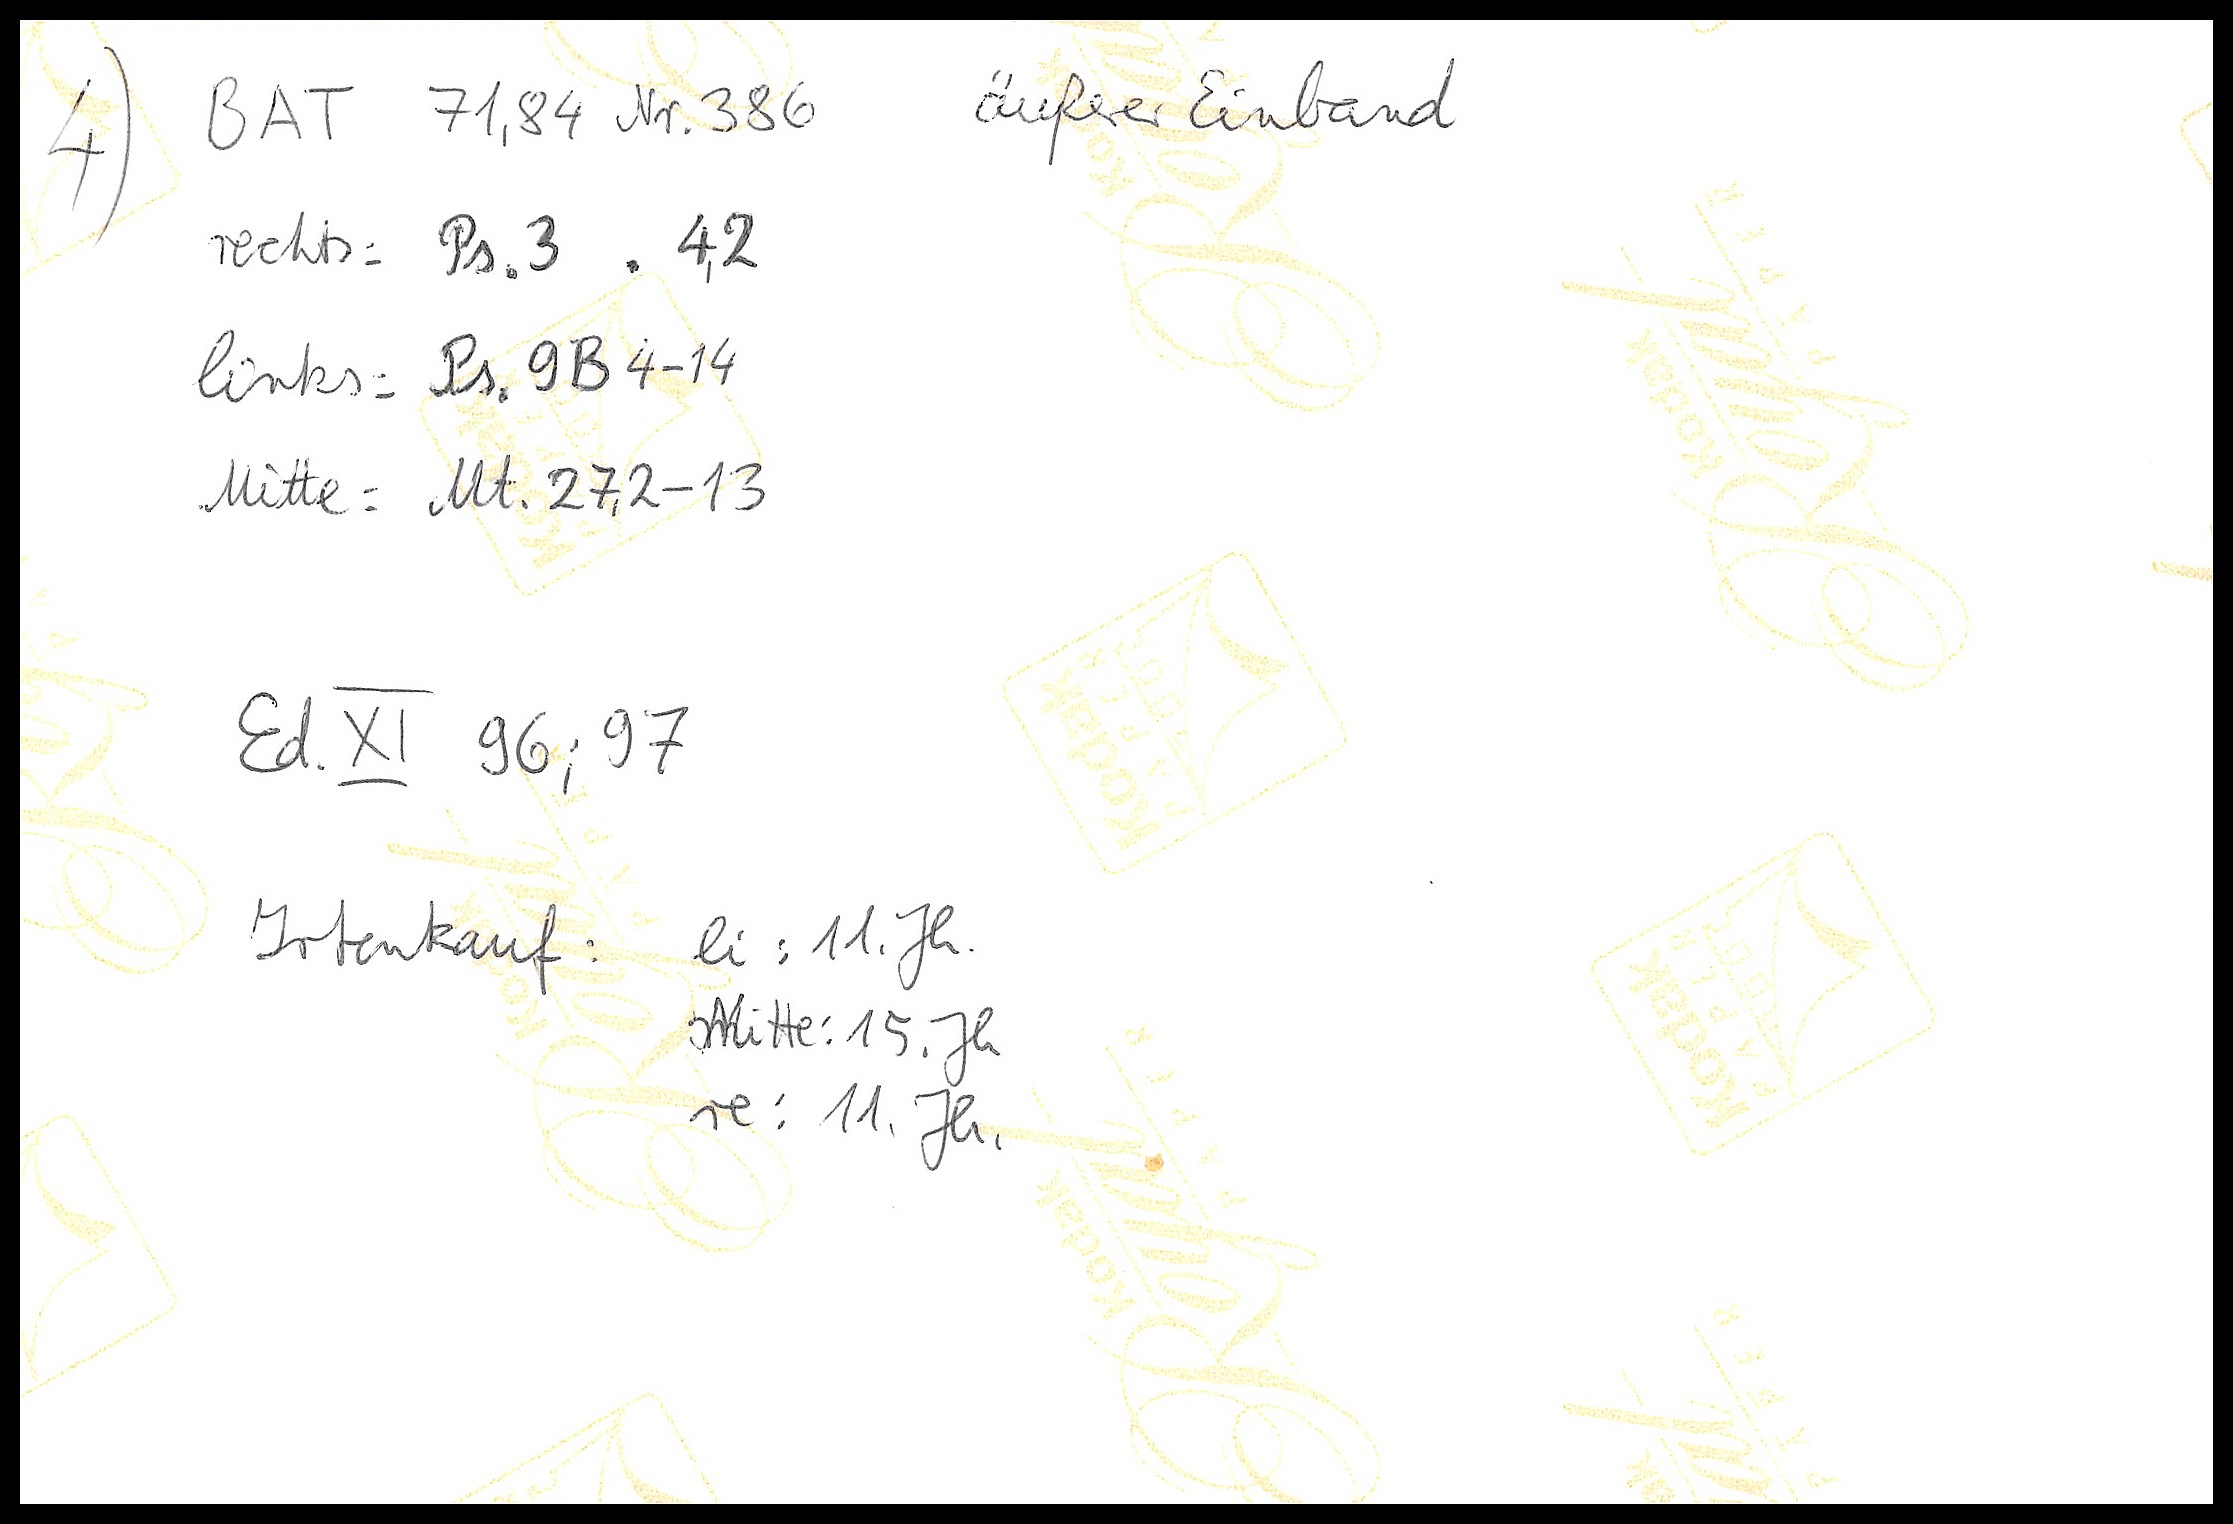 4) BAT 71,84 Nr. 386 äußerer Einband
rechts = Ps. 3 . 4,2
links = Ps. 9B 4-14
Mitte = Mt. 27,2-13
Ed. XI 96; 97
Irtenkauf: li: 11. Jh.
Mitte: 15. Jh
re: 11. Jh.